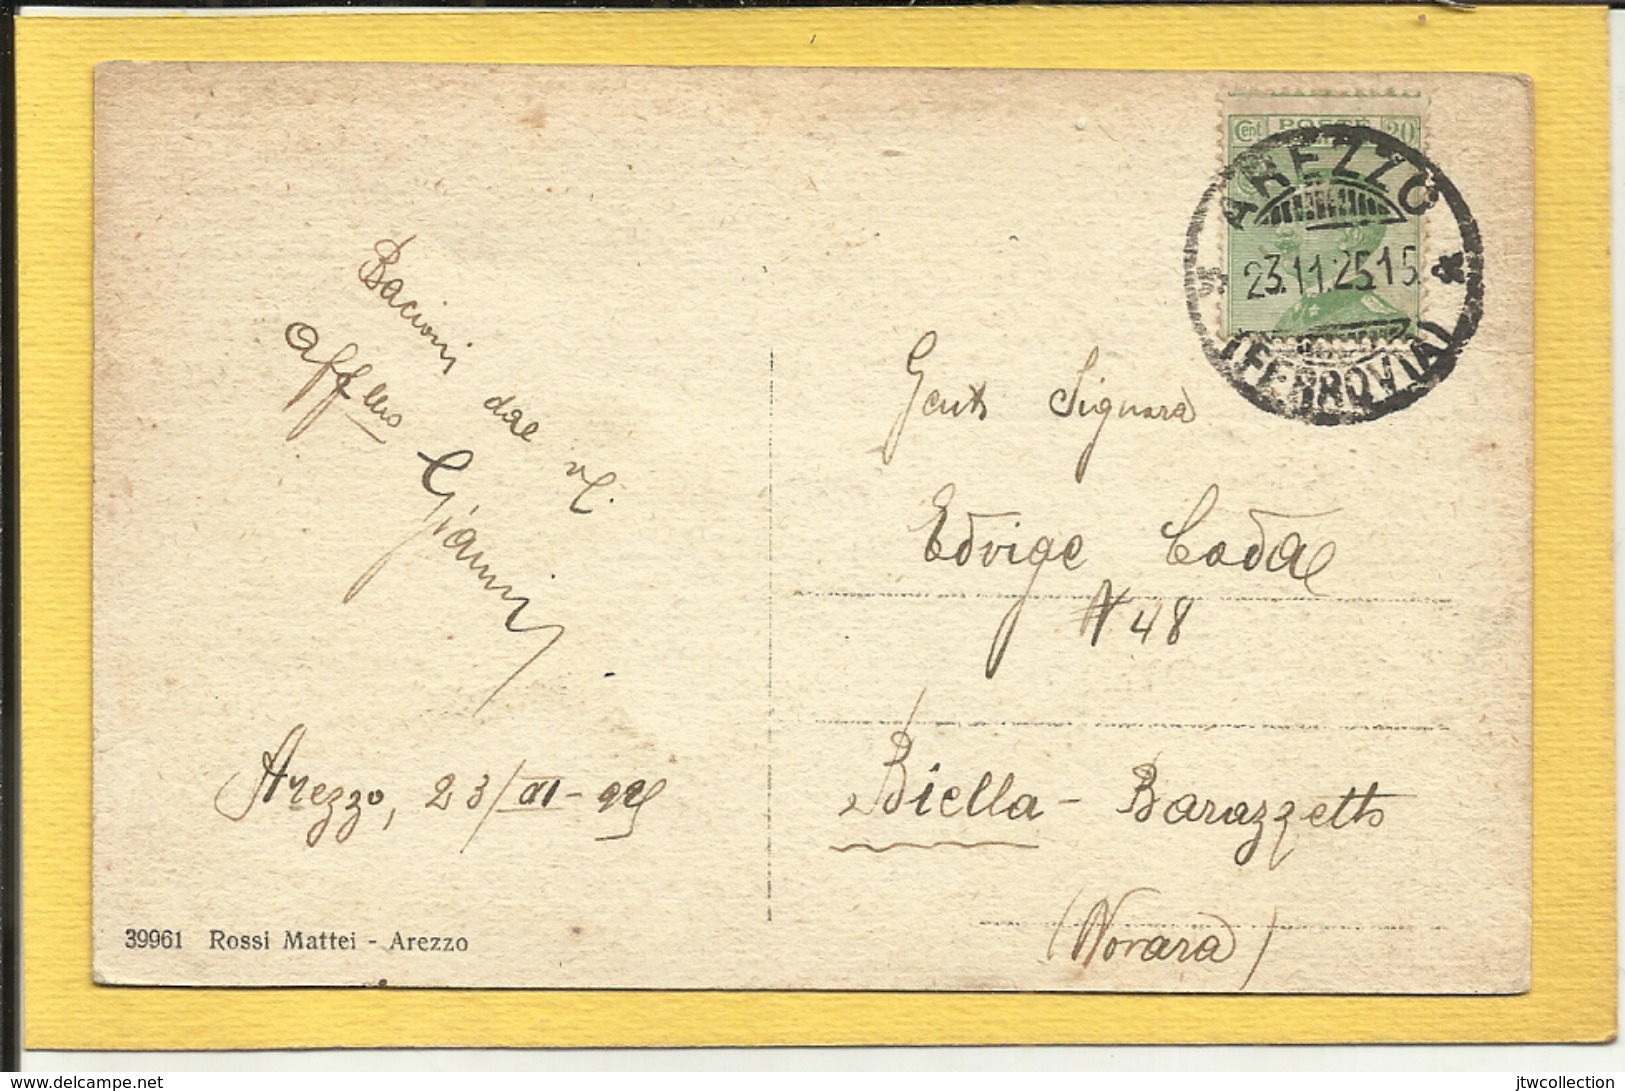 Bacioni dal
aff.mo
Gianni
Arezzo, 23/XI-925
39961 Rossi Mattei - Arezzo
Cent POSTE 20
AREZZO
23.11.25 15
(FERROVIA)
Signora
Edvige Coda
N 48
Biella - Barazzetto
(Novara)
jtwcollection